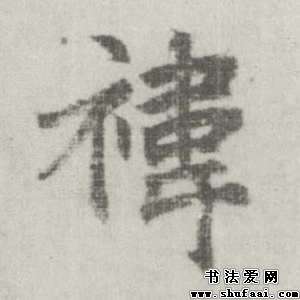 禕
书法爱网
www.shufaai.com